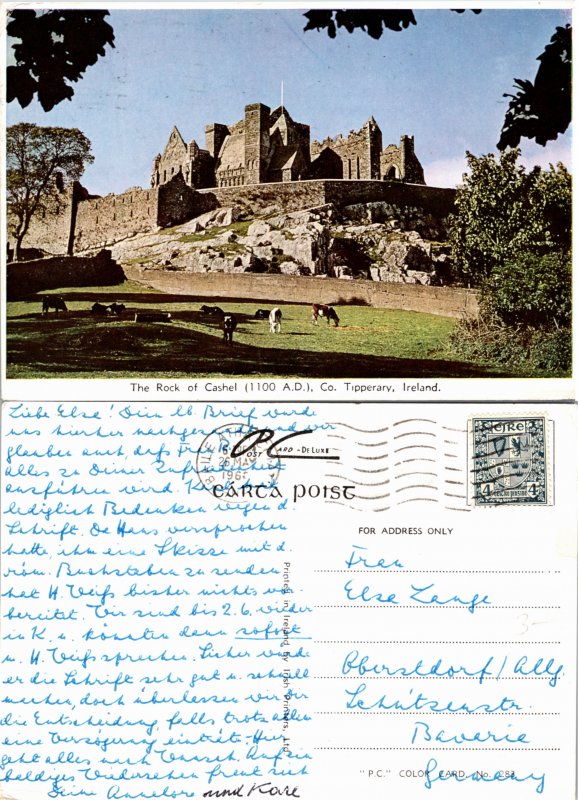 The Rock of Cashel (1100 A.D.), Co. Tipperary, Ireland.
Liebe Else! Dein lb. Brief wurde
uns hierher nachgesandt und wir
glauben auch, daß Frl.
alles zu Deiner Zufriedenheit
ausführen wird.
lediglich Bedenken wegen d.
Schrift. Da Hans versprochen
hatte, ihm eine Skizze mit d.
röm. Buchstaben zu senden,
hat H. Veiß bisher nichts vor-
bereitet. Wir sind bis 2.6. wieder
in K. u. könnten dann sofort
m. H. Veiß sprechen. Sicher würde
er die Schrift sehr gut u. schnell
machen, doch überlassen wir Dir
die Entscheidung, falls trotz allem
eine Verzögerung eintritt. Hier
geht alles nach Wunsch. Auf ein
baldiges Wiedersehen freut sich
Deine Annelore und Karl
PC
POST CARD - DE LUXE
CÁRTA POIST
26 MAY
ÉIRE
4 4
FOR ADDRESS ONLY
Frau
Else Lange
Oberstdorf / Allg.
Schützenstr.
Bavaria
Germany
3-
Printed in Ireland by Irish Printers, Ltd.
"P.C." COLOR CARD No. C83